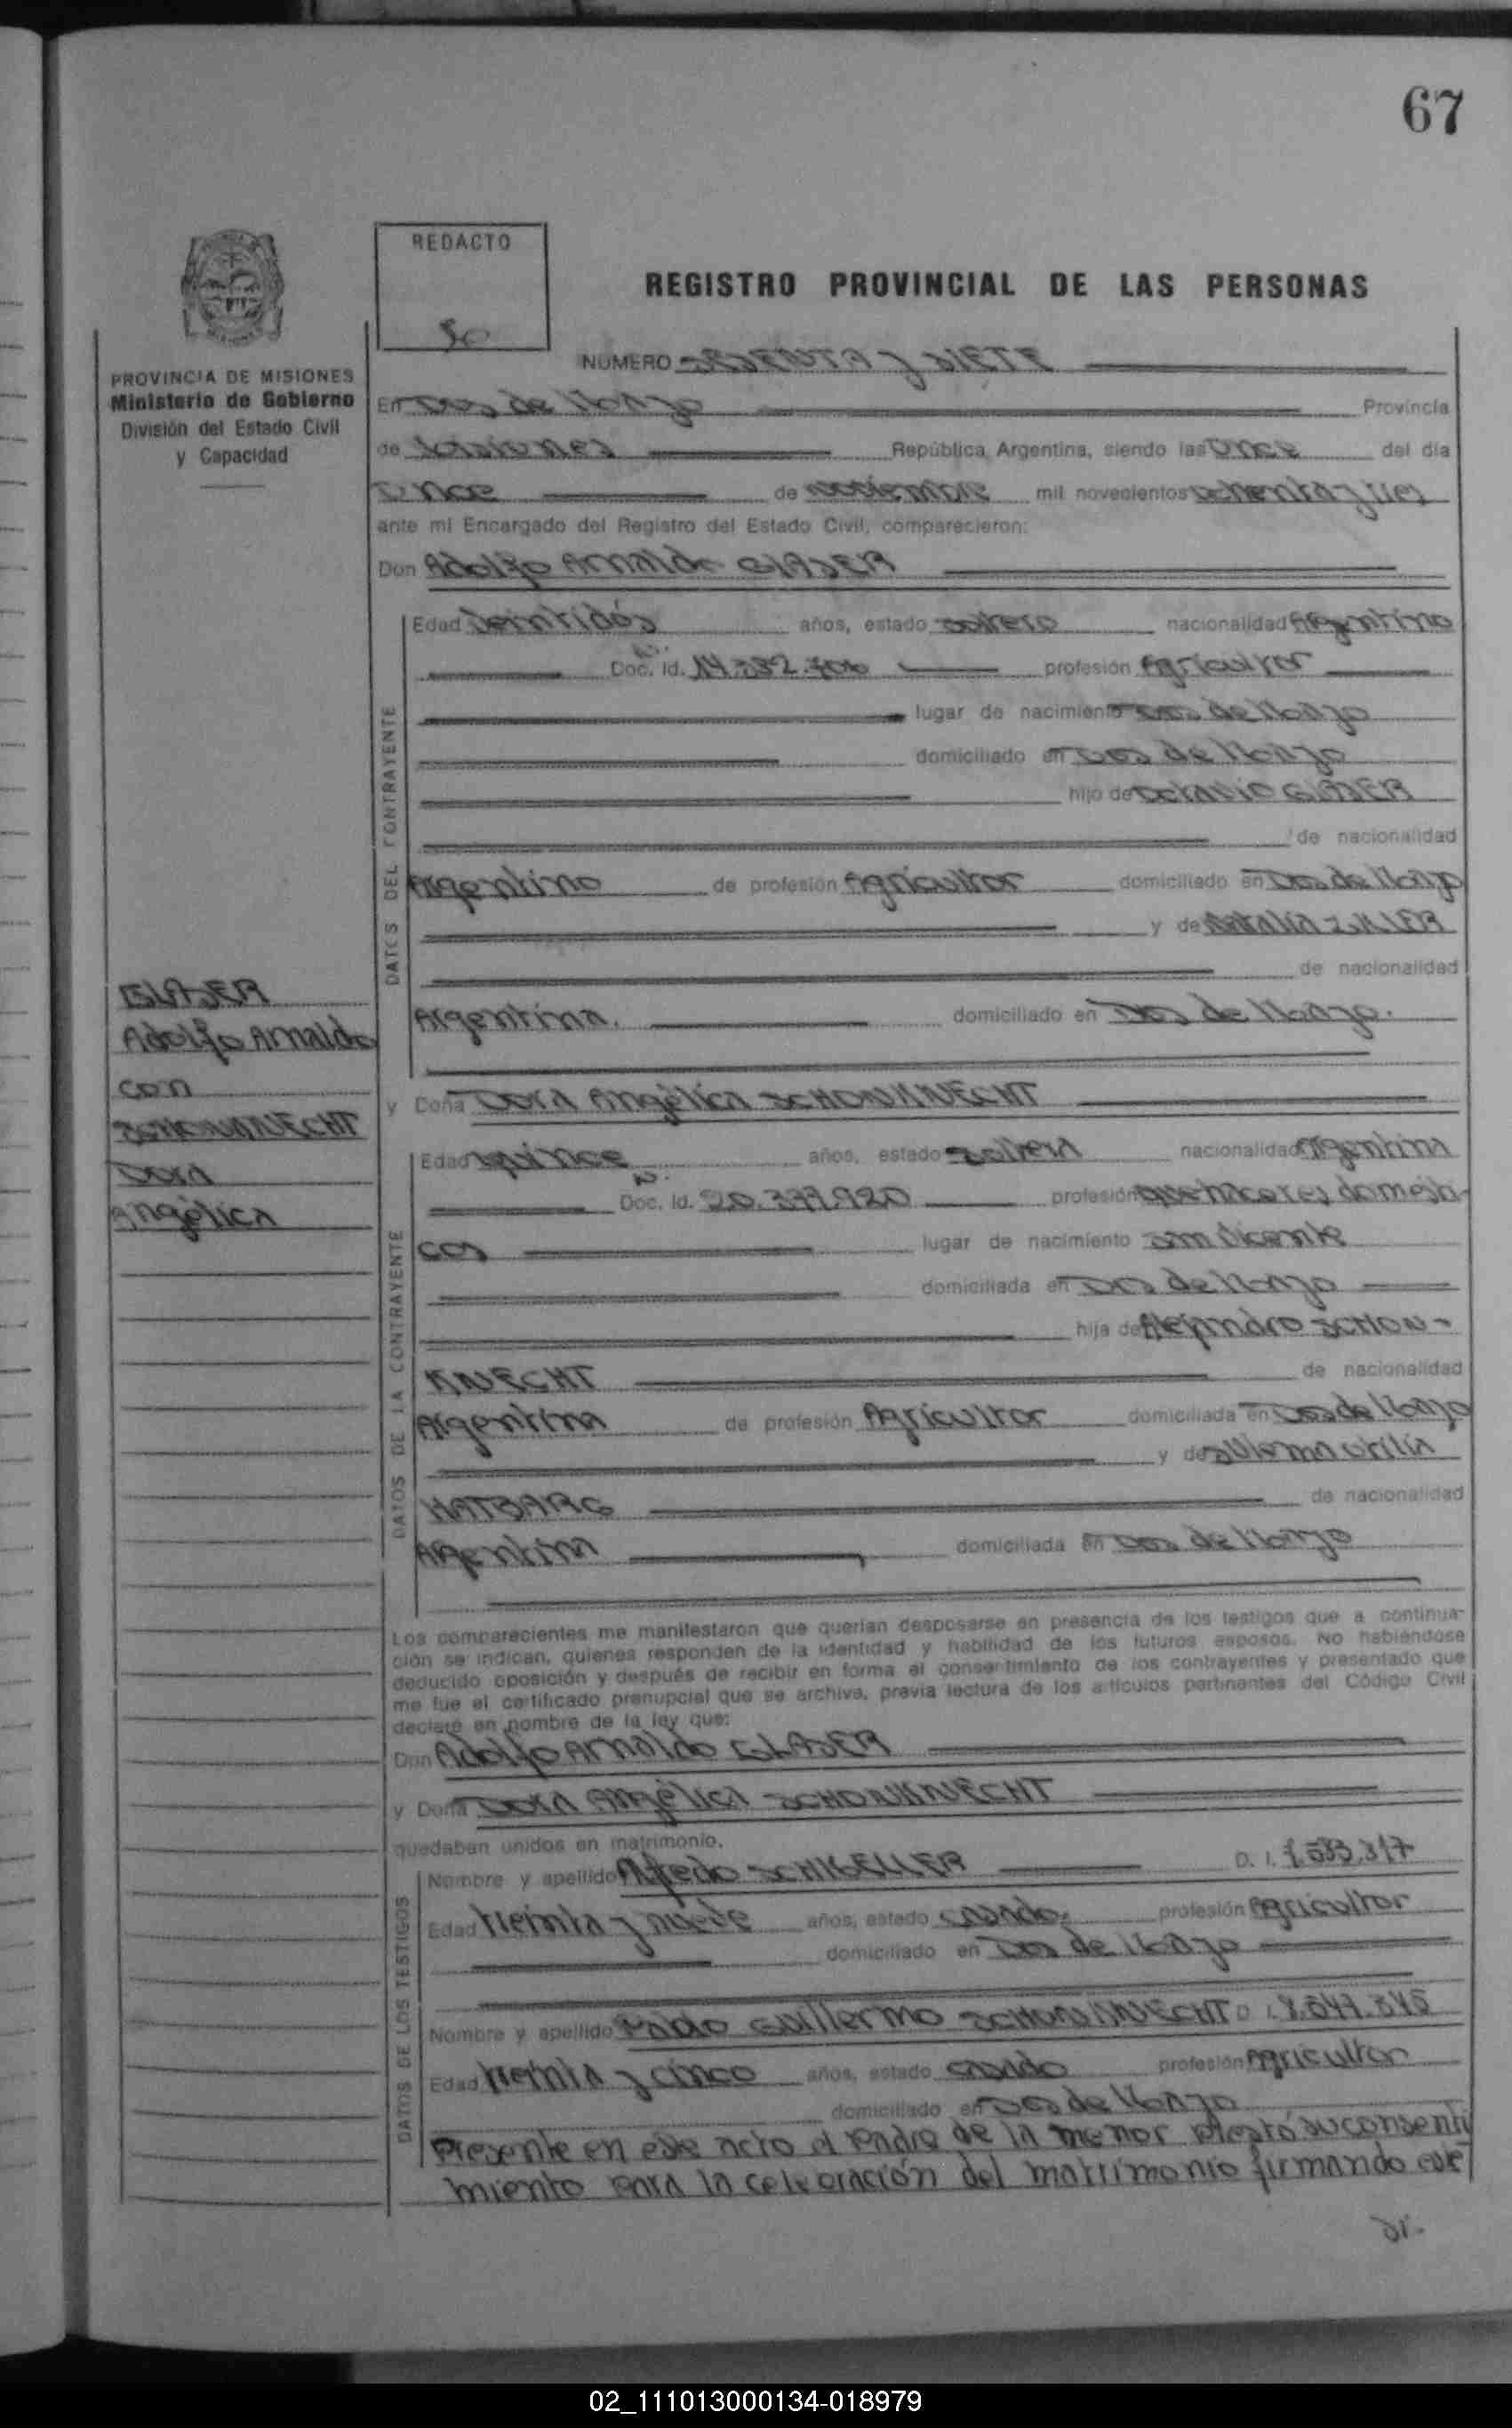 67
REDACTO
REGISTRO PROVINCIAL DE LAS PERSONAS
NUMERO SESENTA y SIETE
PROVINCIA DE MISIONES
Ministerio de Gobierno
División del Estado Civil
y Capacidad
En Dos de Mayo Provincia
de Misiones República Argentina, siendo las once del día
once de noviembre mil novecientos ochenta y tres
ante mi Encargado del Registro del Estado Civil, comparecieron:
Don Adolfo Arnaldo GLASER
DATOS DEL CONTRAYENTE
Edad veintidós años, estado soltero nacionalidad Argentino
Doc. Id. profesión Agricultor
lugar de nacimiento Dos de Mayo
domiciliado en Dos de Mayo
hijo de Octavio GLASER
de nacionalidad
Argentino de profesión Agricultor domiciliado en Dos de Mayo
y de Natalia
de nacionalidad
Argentina. domiciliado en Dos de Mayo.
GLASER
Adolfo Arnaldo
con
SCHONKNECHT
Dora
Angélica
y Doña Dora Angélica SCHONKNECHT
DATOS DE LA CONTRAYENTE
Edad quince años, estado soltera nacionalidad Argentina
Doc. Id. 20.399.920 profesión quehaceres domésti-
cos lugar de nacimiento San Vicente
domiciliada en Dos de Mayo
hija de Alejandro SCHON-
KNECHT de nacionalidad
Argentina de profesión Agricultor domiciliada en Dos de Mayo
y de
de nacionalidad
Argentina domiciliada en Dos de Mayo
Los comparecientes me manifestaron que querían desposarse en presencia de los testigos que a continua-
ción se indican, quienes responden de la identidad y habilidad de los futuros esposos. No habiéndose
deducido oposición y después de recibir en forma el consentimiento de los contrayentes y presentado que
me fue el certificado prenupcial que se archiva, previa lectura de los artículos pertinentes del Código Civil
declaré en nombre de la ley que:
Don Adolfo Arnoldo GLASER
y Doña Dora Angélica SCHONKNECHT
quedaban unidos en matrimonio.
DATOS DE LOS TESTIGOS
Nombre y apellido Alfredo D. I.
Edad treinta y nueve años, estado casado profesión Agricultor
domiciliado en Dos de Mayo
Nombre y apellido Pablo Guillermo SCHONKNECHT D. I.
Edad treinta y cinco años, estado casado profesión Agricultor
domiciliado en Dos de Mayo
Presente en este acto el Padre de la menor prestó su consenti
miento para la celebración del matrimonio firmando este
02_111013000134-018979